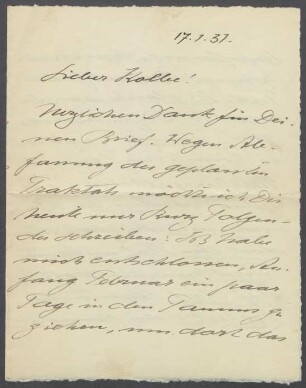 17.1.37.
Lieber Kolbe!
Herzlichen Dank für Dei-
nen Brief. Wegen Ab-
fassung des geplanten
Traktats möchte ich Dir
heute nur kurz Folgen-
des schreiben: Ich habe
mich entschlossen, An-
fang Februar ein paar
Tage in den Taunus zu
ziehen, um dort das